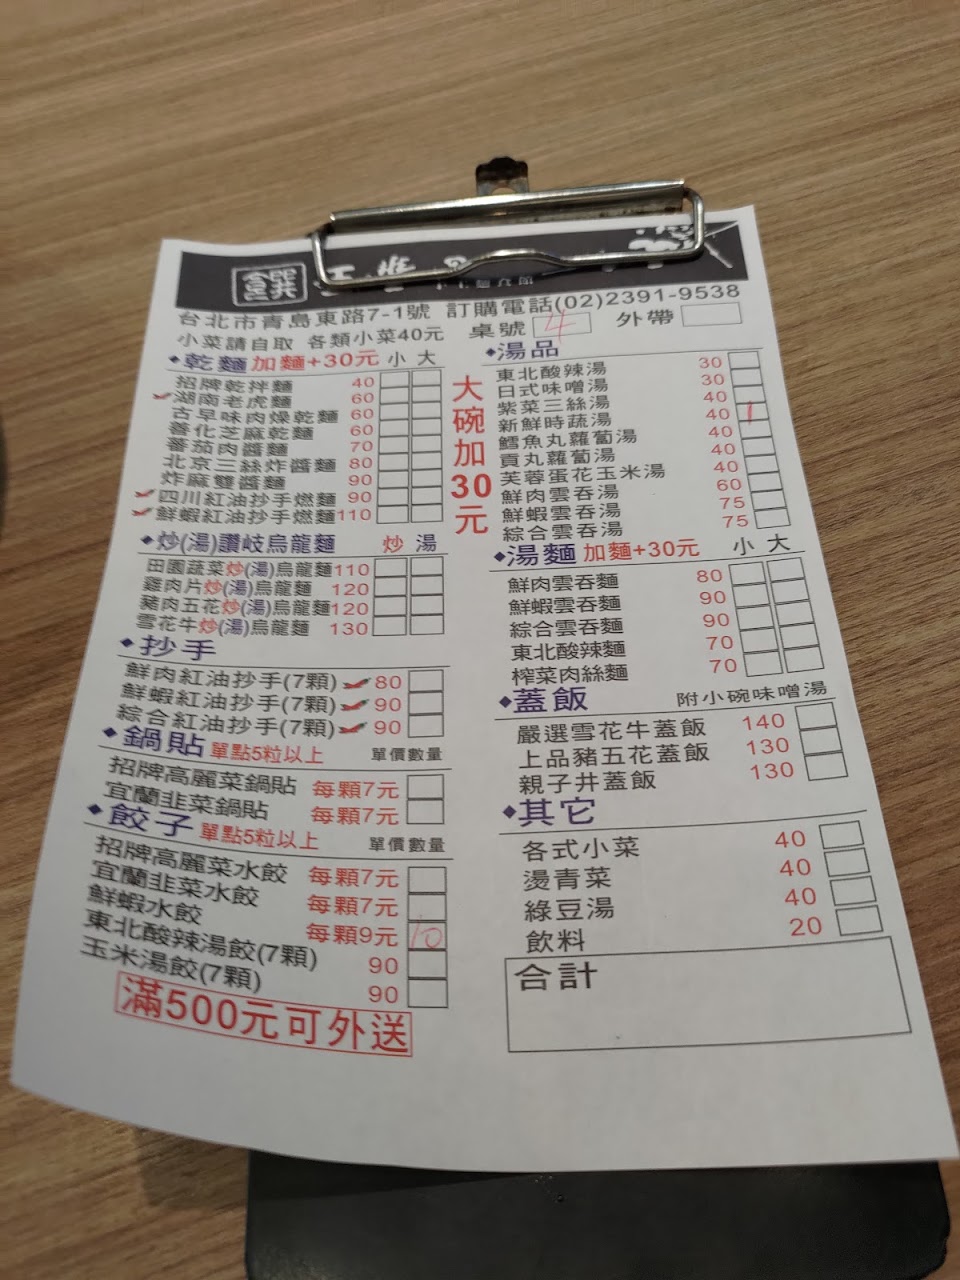 饌
台北市青島東路7-1號 訂購電話(02)2391-9538
小菜請自取 各類小菜40元 桌號 4 外帶
◆乾麵 加麵+30元 小 大
招牌乾拌麵 40
湖南老虎麵 60
古早味肉燥乾麵 60
善化芝麻乾麵 60
蕃茄肉醬麵 70
北京三絲炸醬麵 80
炸麻雙醬麵 90
四川紅油抄手燃麵 90
鮮蝦紅油抄手燃麵 110
◆炒(湯)讚岐烏龍麵 炒 湯
田園蔬菜炒(湯)烏龍麵 110
雞肉片炒(湯)烏龍麵 120
豬肉五花炒(湯)烏龍麵 120
雪花牛炒(湯)烏龍麵 130
◆抄手
鮮肉紅油抄手(7顆) 80
鮮蝦紅油抄手(7顆) 90
綜合紅油抄手(7顆) 90
◆鍋貼 單點5粒以上 單價數量
招牌高麗菜鍋貼 每顆7元
宜蘭韭菜鍋貼 每顆7元
◆餃子 單點5粒以上 單價數量
招牌高麗菜水餃 每顆7元
宜蘭韭菜水餃 每顆7元
鮮蝦水餃 每顆9元 10
東北酸辣湯餃(7顆) 90
玉米湯餃(7顆) 90
滿500元可外送
大碗加30元
◆湯品
東北酸辣湯 30
日式味噌湯 30
紫菜三絲湯 40
新鮮時蔬湯 40 1
鱈魚丸蘿蔔湯 40
貢丸蘿蔔湯 40
芙蓉蛋花玉米湯 40
鮮肉雲吞湯 60
鮮蝦雲吞湯 75
綜合雲吞湯 75
◆湯麵 加麵+30元 小 大
鮮肉雲吞麵 80
鮮蝦雲吞麵 90
綜合雲吞麵 90
東北酸辣麵 70
榨菜肉絲麵 70
◆蓋飯 附小碗味噌湯
嚴選雪花牛蓋飯 140
上品豬五花蓋飯 130
親子丼蓋飯 130
◆其它
各式小菜 40
燙青菜 40
綠豆湯 40
飲料 20
合計